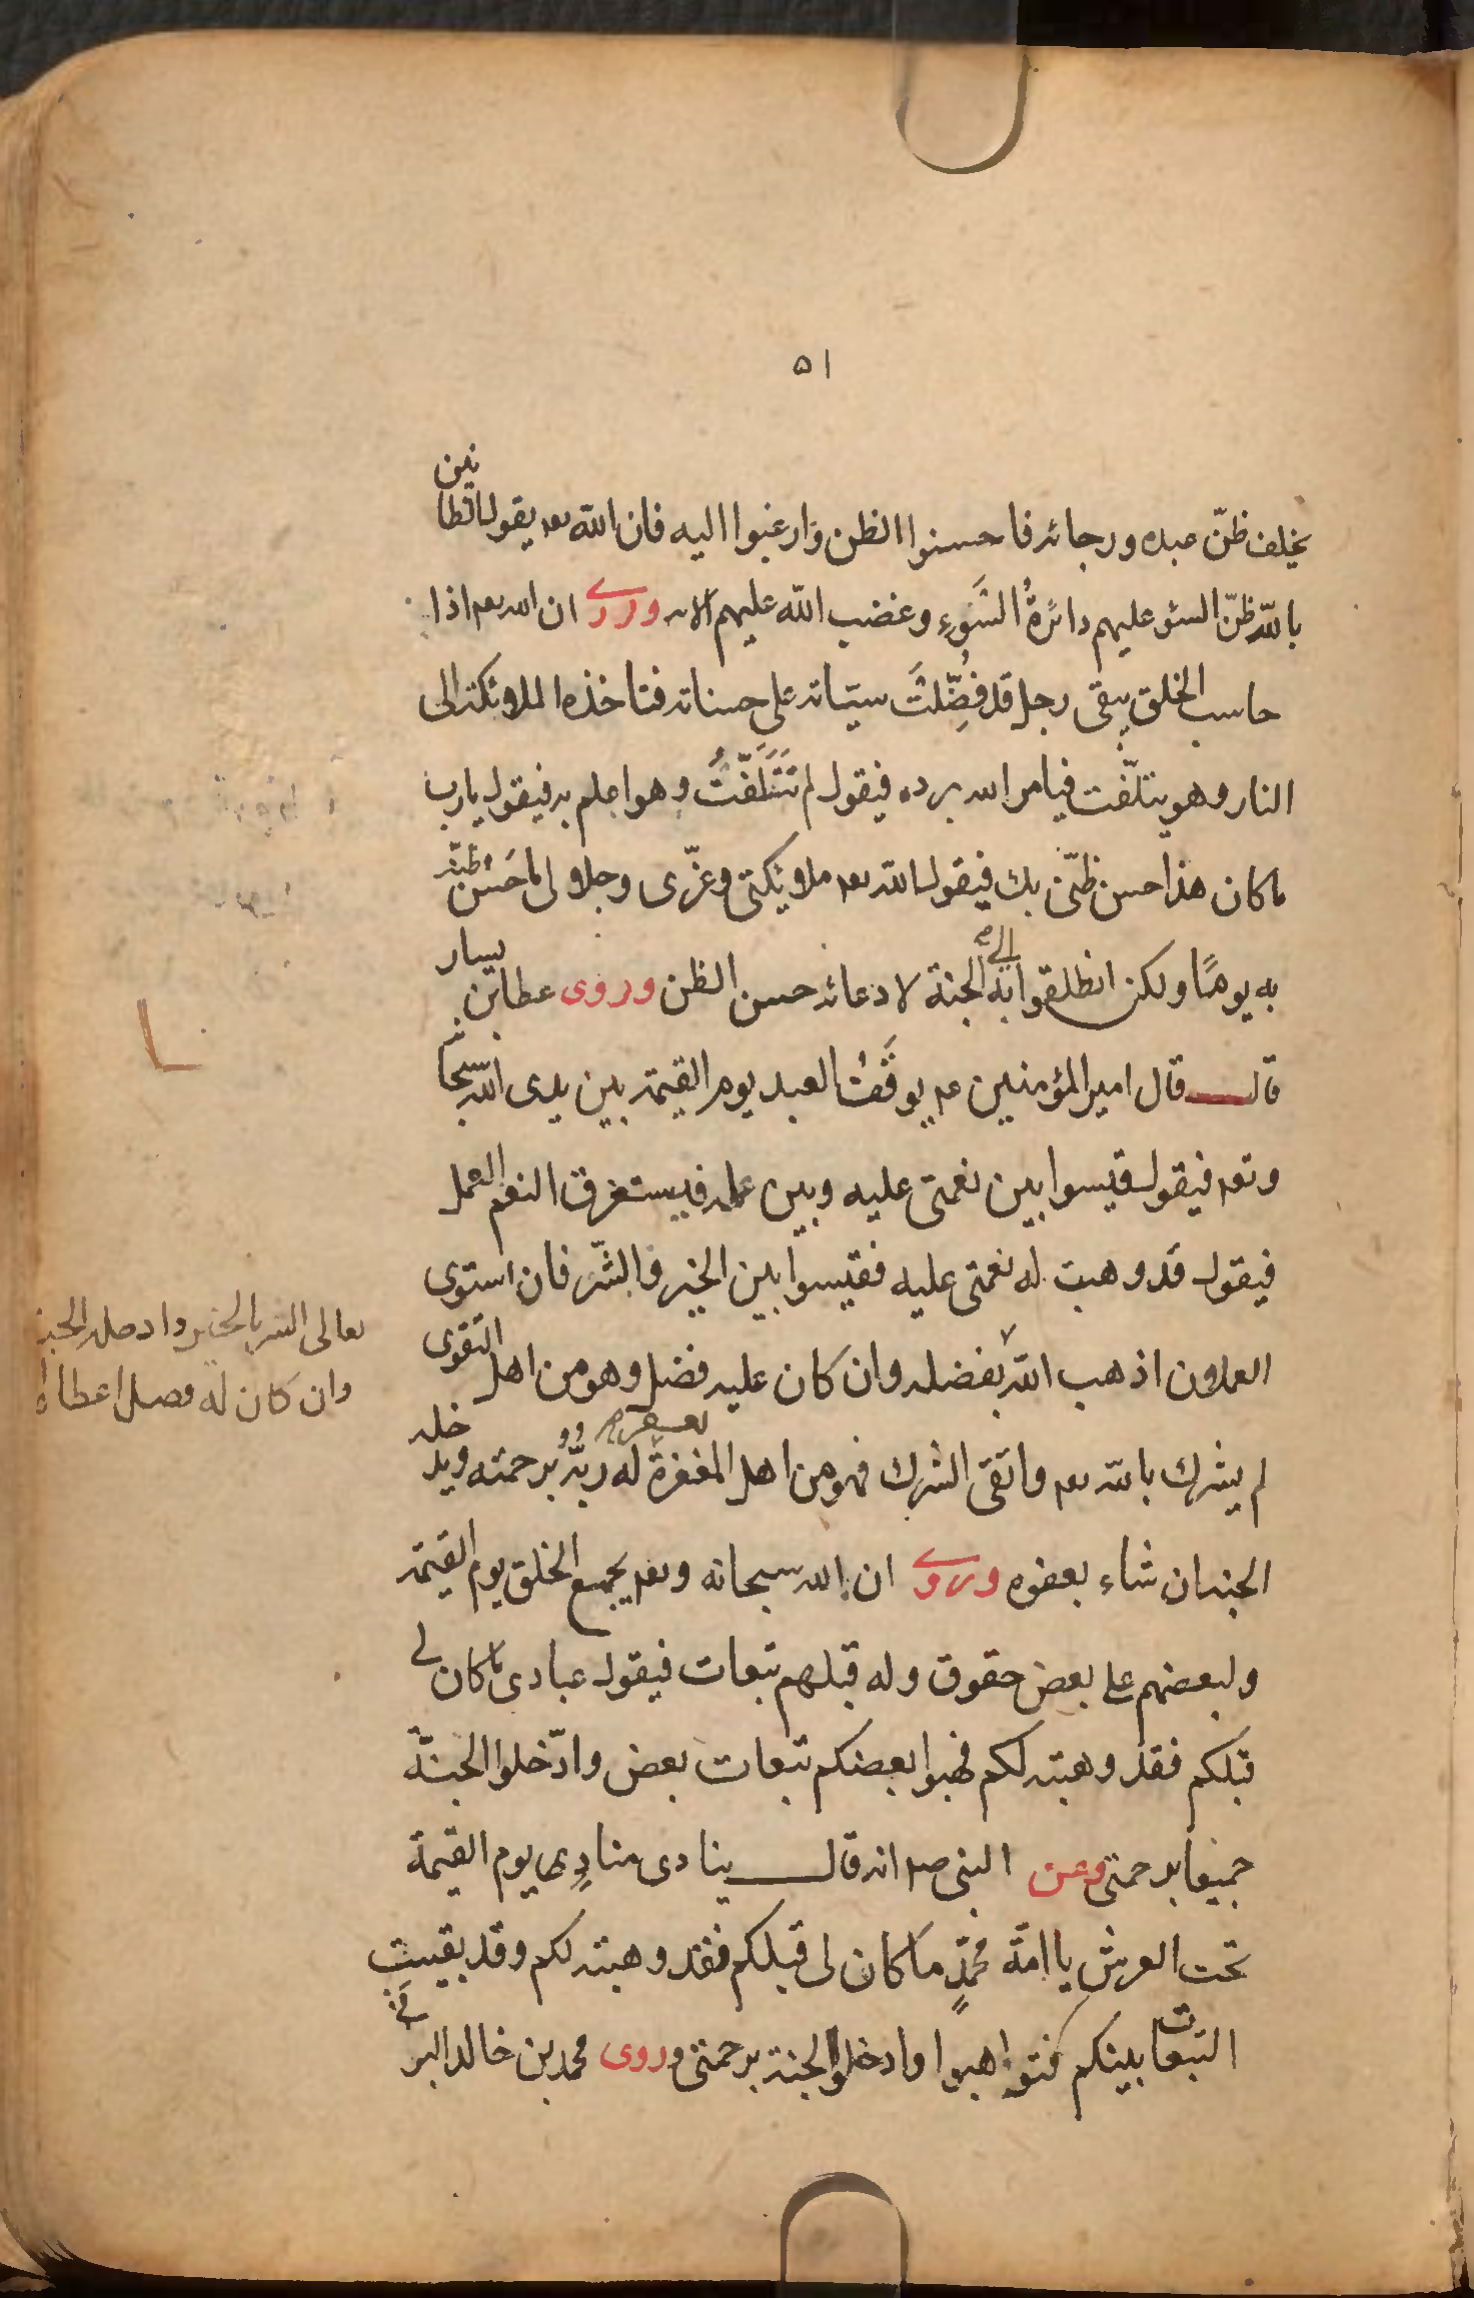 ٥١
يخلف ظنّ عبده ورجائه فاحسنوا الظن وارغبوا اليه فان الله تعه يقول الظانين
بالله ظنّ السوء عليهم دائرةُ السَّوءِ وغضب الله عليهم الايه وروى ان الله تعه اذا
حاسب الخلق يبقى رجل قد فُضِّلَتْ سيّاته على حسناته فتاخذه الملائكة الى
النار وهو يتلفّت فيامر الله برده فيقول لم تَتَلَفَّتُ وهو اعلم به فيقول يارب
ما كان هذا حسن ظنّى بك فيقول الله تعه ملائكتى وعزّى وجلالى ما حَسُن ظنّه
به يومًا ولكن انطلقوا به الى الجنة لادعائه حسن الظن وروى عطا بن يسار
قال قال امير المؤمنين عم يوقَفُ العبد يوم القيمة بين يدى الله سبحا
وتعه فيقول قيسوا بين نعمتى عليه وبين عمله فيستغرق النعم العمل
فيقول قد وهبت له نعمتى عليه فقيسوا بين الخير والشّر فان استوى
العملان اذهب الله بفضله وان كان عليه فضل وهو من اهل التقوى
تعالى الشر بالخير وادخله الجنة
وان كان له فضل اعطاه
لم يشرك بالله تعه واتقى الشرك فهو من اهل المغفرة يغفر له ربّه برحمته ويدخله
الجنه ان شاء بعفوه وروى ان الله سبحانه وتعه يجمع الخلق يوم القيمة
ولبعضهم على بعض حقوق وله قبلهم تبعات فيقول عبادى ما كان لى
قبلكم فقد وهبته لكم فهبوا بعضكم تبعات بعض وادّخلوا الجنّة
جميعا برحمتى وعن النبى صم انه قال ينادى منادِى يوم القيمة
تحت العرش يا امّة محمّدٍ ما كان لى قبلكم فقد وهبته لكم وقد بقيتِ
التبعات بينكم فتواهبوا وادخلوا الجنة برحمتى وروى محمد بن خالد البرقى